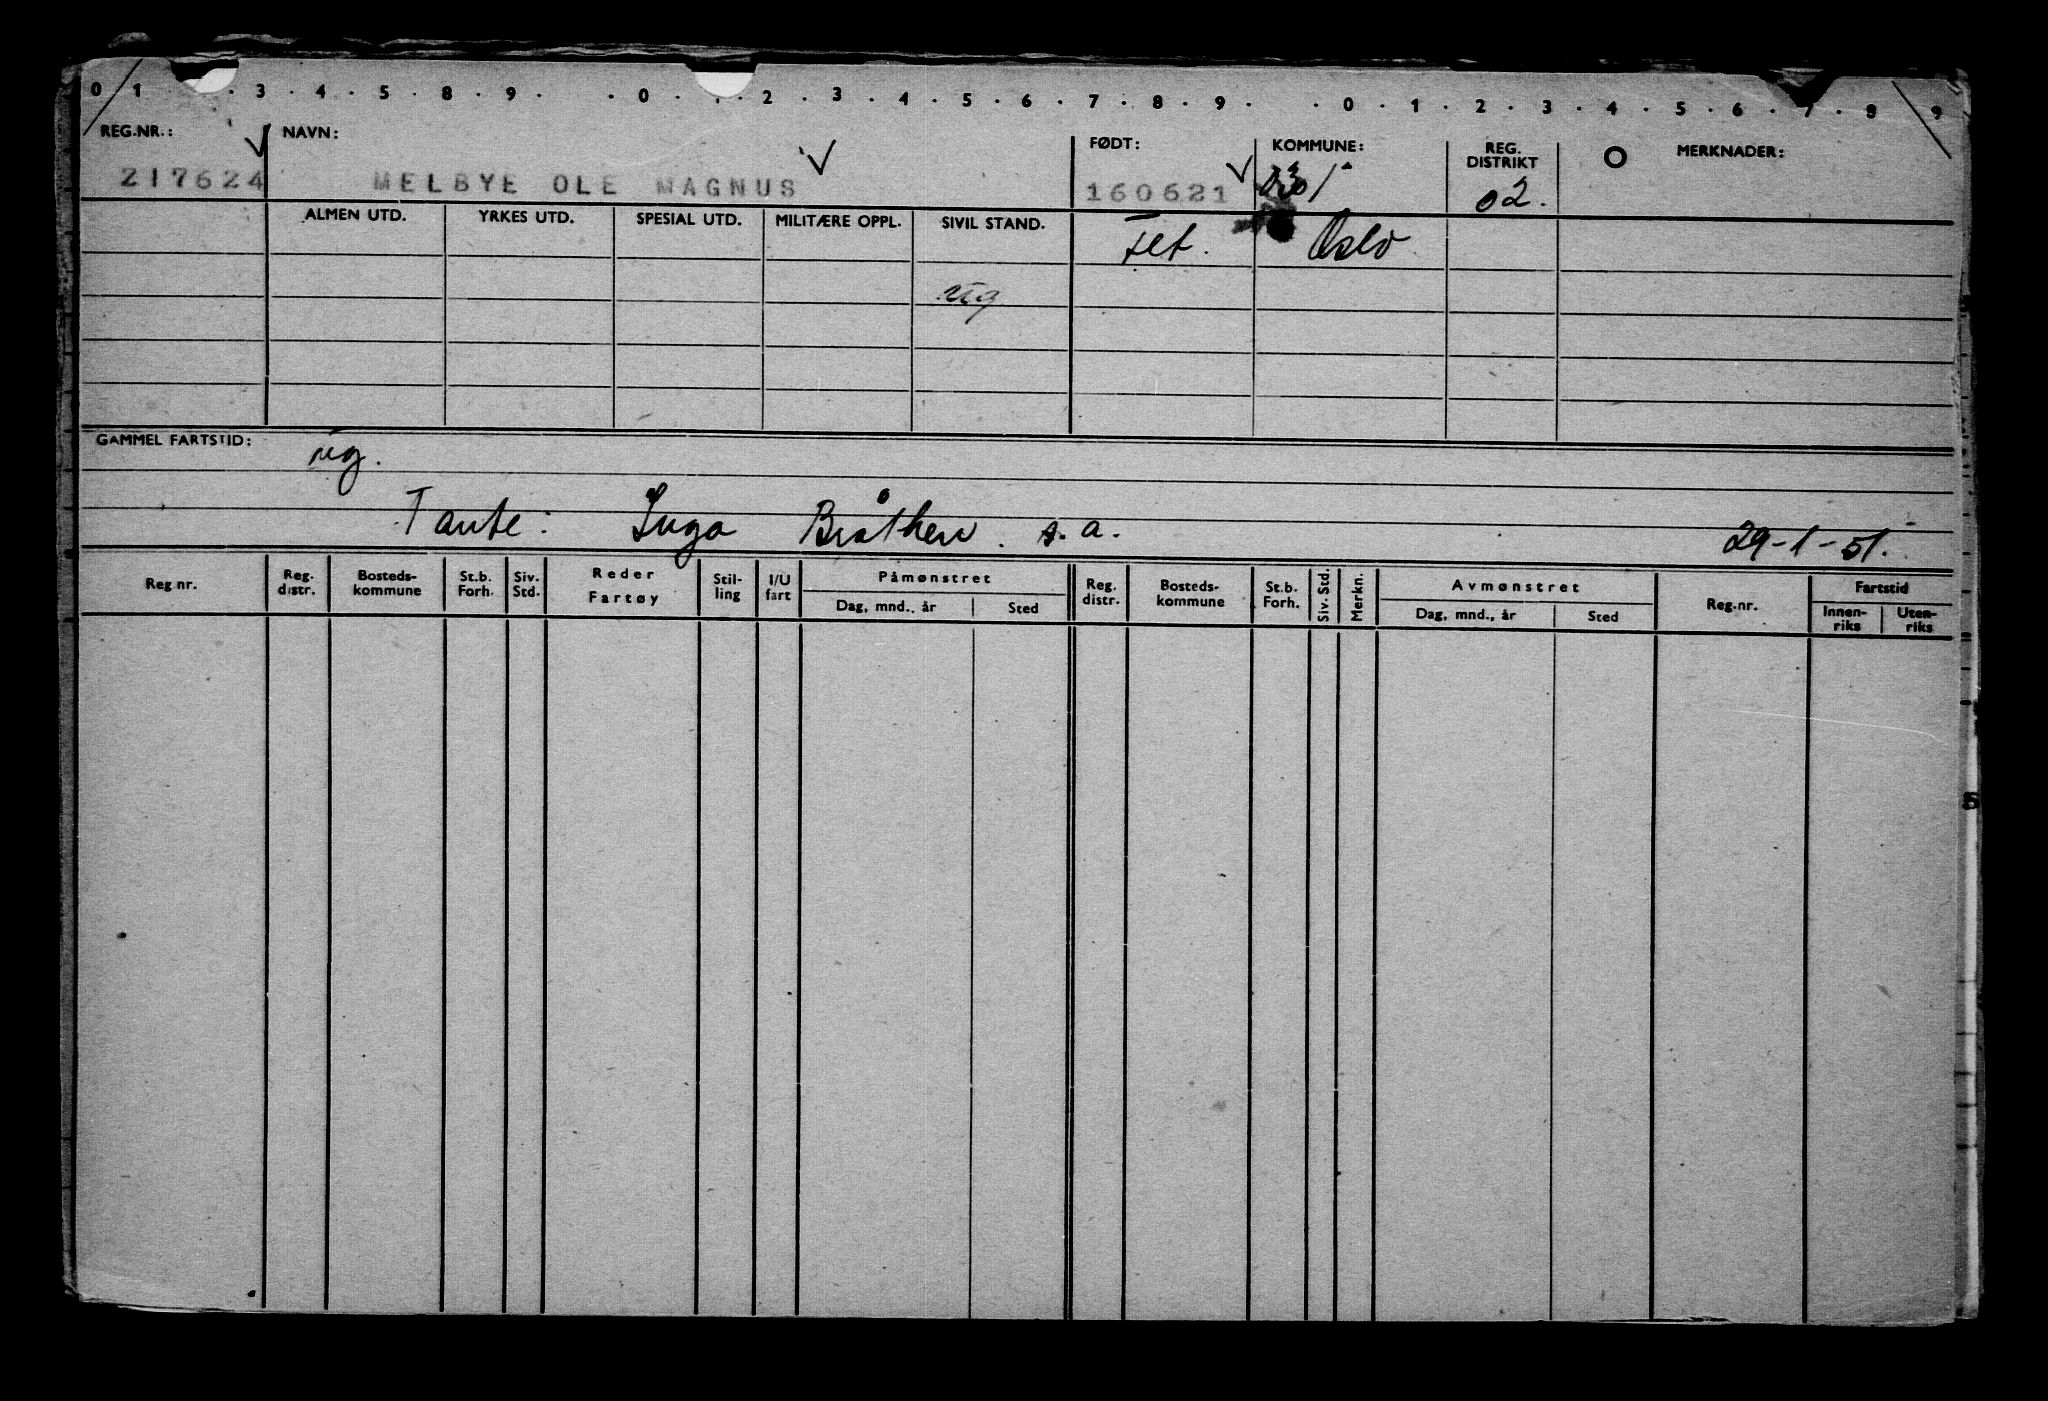 0 1 . 3 . 4 . 5 . 8 . 9 . . 0 . 1 . 2 . 3 . 4 . 5 . 6 . 7 . 8 . 9 . . 0 . 1 . 2 . 3 . 4 . 5 . 6 . 7 . 8 . 9
REG.NR.: NAVN: FØDT: KOMMUNE: REG. DISTRIKT MERKNADER:
217624 MELBYE OLE MAGNUS 160621 02.
ALMEN UTD. YRKES UTD. SPESIAL UTD. MILITÆRE OPPL. SIVIL STAND. Fet. Oslo
ug
GAMMEL FARTSTID: ug.
Tante: Inga Bråthen. s.a. 29-1-51.
Reg nr. Reg. distr. Bosteds-kommune St.b. Forh. Siv. Std. Reder Fartøy Stil-ling I/U fart Påmønstret Reg. distr. Bosteds-kommune St.b. Forh. Siv. Std. Merkn. Avmønstret Reg.nr. Fartstid
Dag, mnd., år Sted Dag, mnd., år Sted Innen-riks Uten-riks